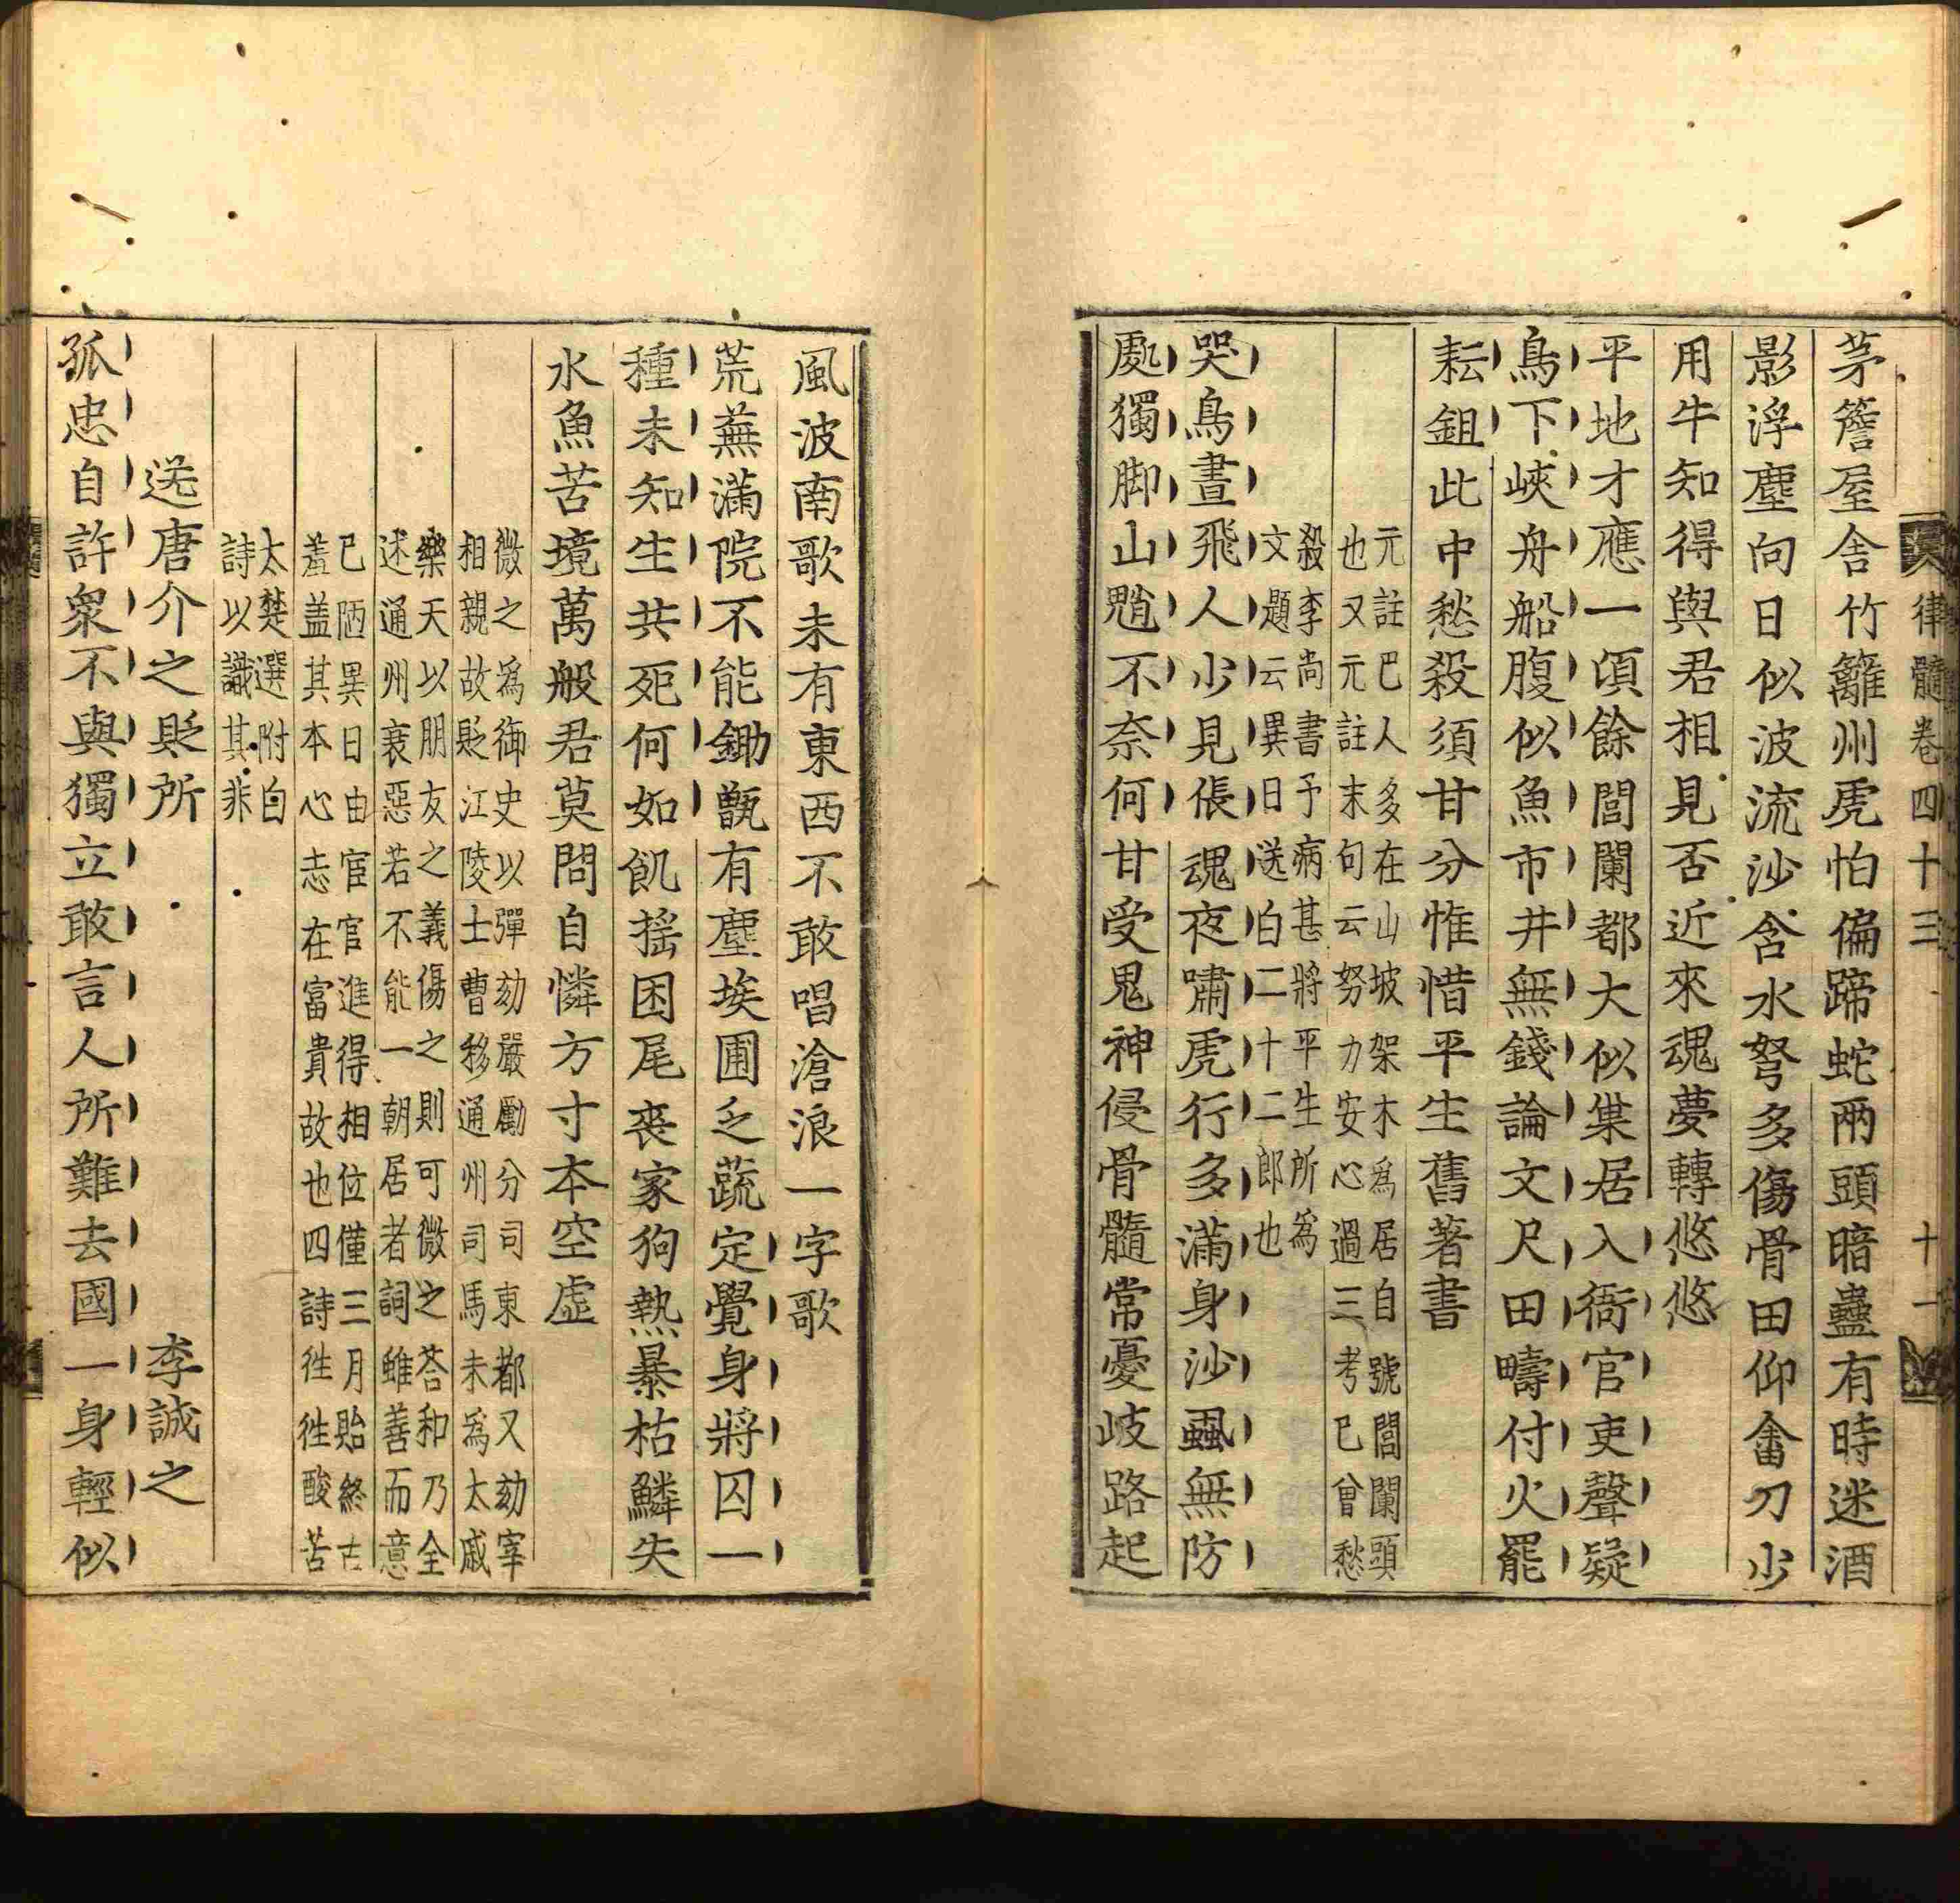 律髓卷四十三 十一
茅簷屋舍竹籬州虎怕偏蹄蛇兩頭暗蠱有時迷酒
影浮塵向日似波流沙含水弩多傷骨田仰畬刀少
用牛知得與君相見否近來魂夢轉悠悠
平地才應一頃餘閻闌都大似巢居入衙官吏聲疑
鳥下峽舟船腹似魚市井無錢論文尺田疇付火罷
耘鉏此中愁殺須甘分惟惜平生舊著書
元註巴人多在山坡架木為居自號閻闌頭
也又元註末句云努力安心過三考已曾愁
殺李尚書予病甚將平生所為
文題云異日送白二十二郎也
哭鳥晝飛人少見倀魂夜嘯虎行多滿身沙虱無防
處獨脚山魈不奈何甘受鬼神侵骨髓常憂歧路起
風波南歌未有東西不敢唱滄浪一字歌
荒蕪滿院不能鋤甑有塵埃圃乏蔬定覺身將囚一
種未知生共死何如飢搖困尾喪家狗熱暴枯鱗失
水魚苦境萬般君莫問自憐方寸本空虛
微之為御史以彈劾嚴勵分司東都又劾宰
相親故貶江陵士曹移通州司馬未為太戚
樂天以朋友之義傷之則可微之荅和乃全
述通州衰惡若不能一朝居者詞雖善而意
已陋異日由宦官進得相位僅三月貽終古
羞盖其本心志在富貴故也四詩徃徃酸苦
太楚選附白
詩以識其非
送唐介之貶所 李誠之
孤忠自許衆不與獨立敢言人所難去國一身輕似